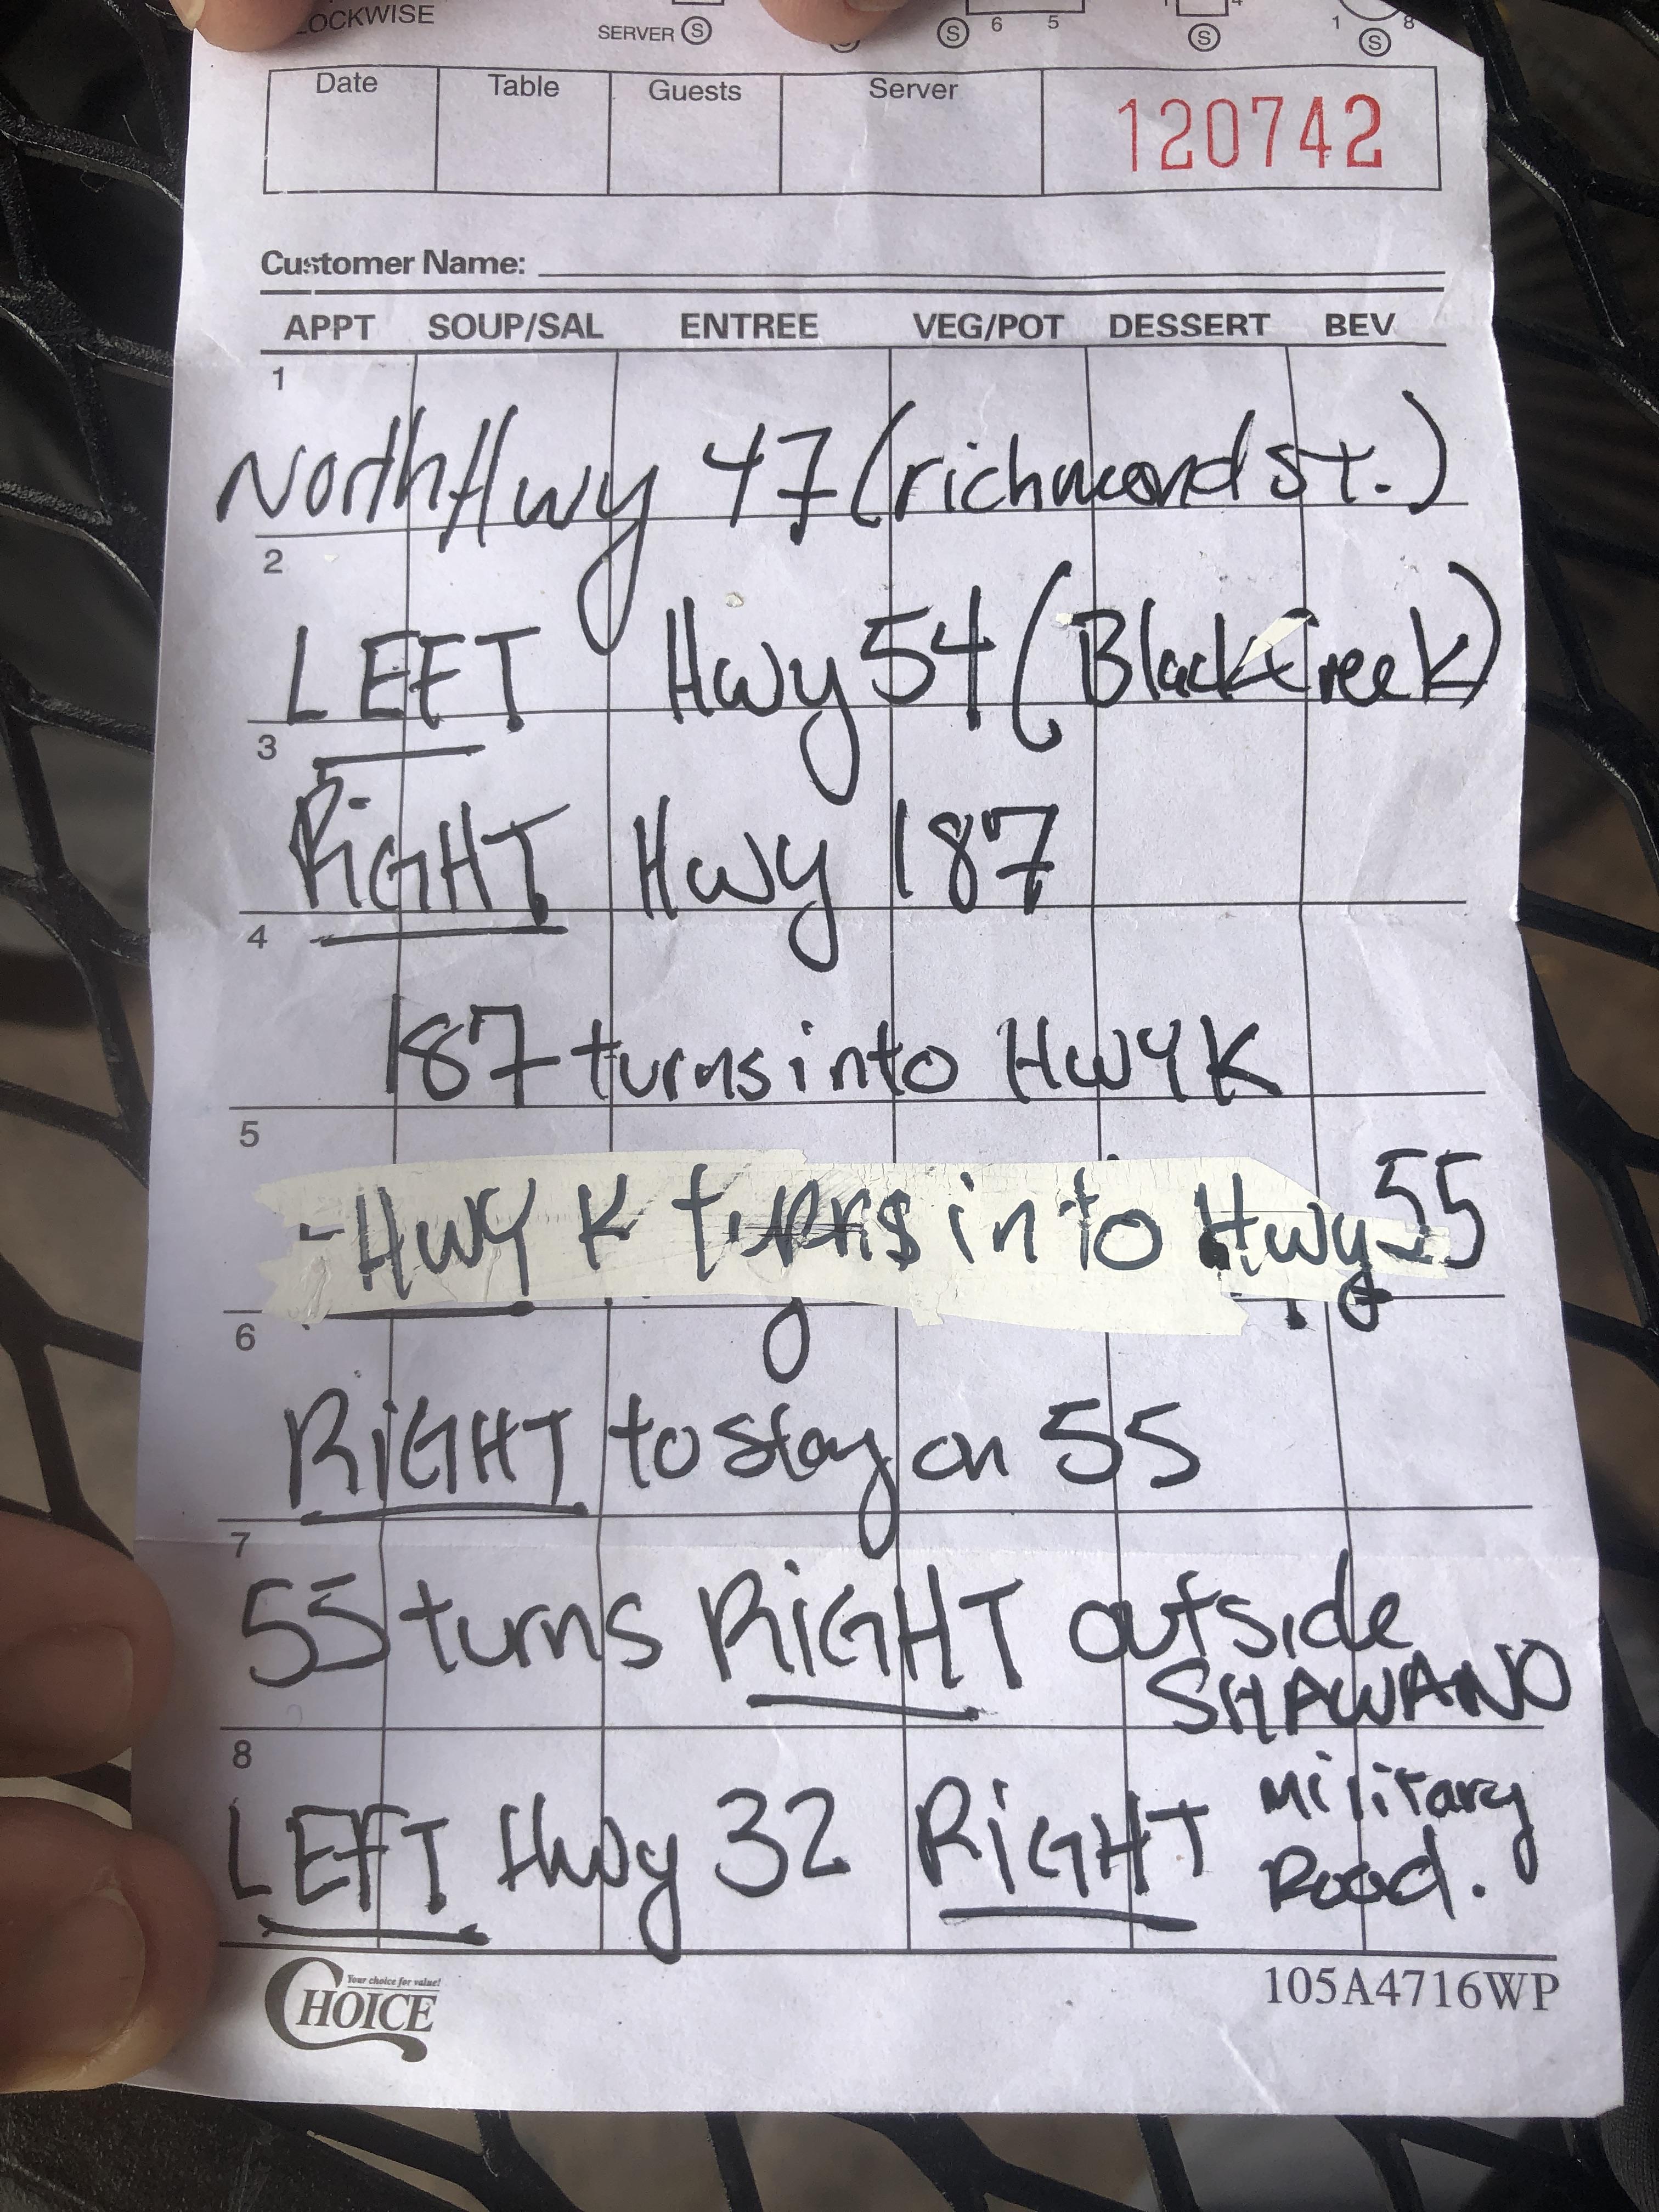 LOCKWISE
SERVER S S 6 5 S 1 4 S 1 8 S
Date Table Guests Server 120742
Customer Name:
APPT SOUP/SAL ENTREE VEG/POT DESSERT BEV
1
North Hwy 47 (richmond st.)
2
LEFT Hwy 54 (Black Creek)
3
RiGHT Hwy 187
4
187 turns into HWY K
5
-HWY K turns into Hwy 55
6
RiGHT to stay on 55
7
55 turns RiGHT outside
SHAWANO
8
LEFT Hwy 32 RiGHT military
Road.
Your choice for value!
CHOICE
105A4716WP